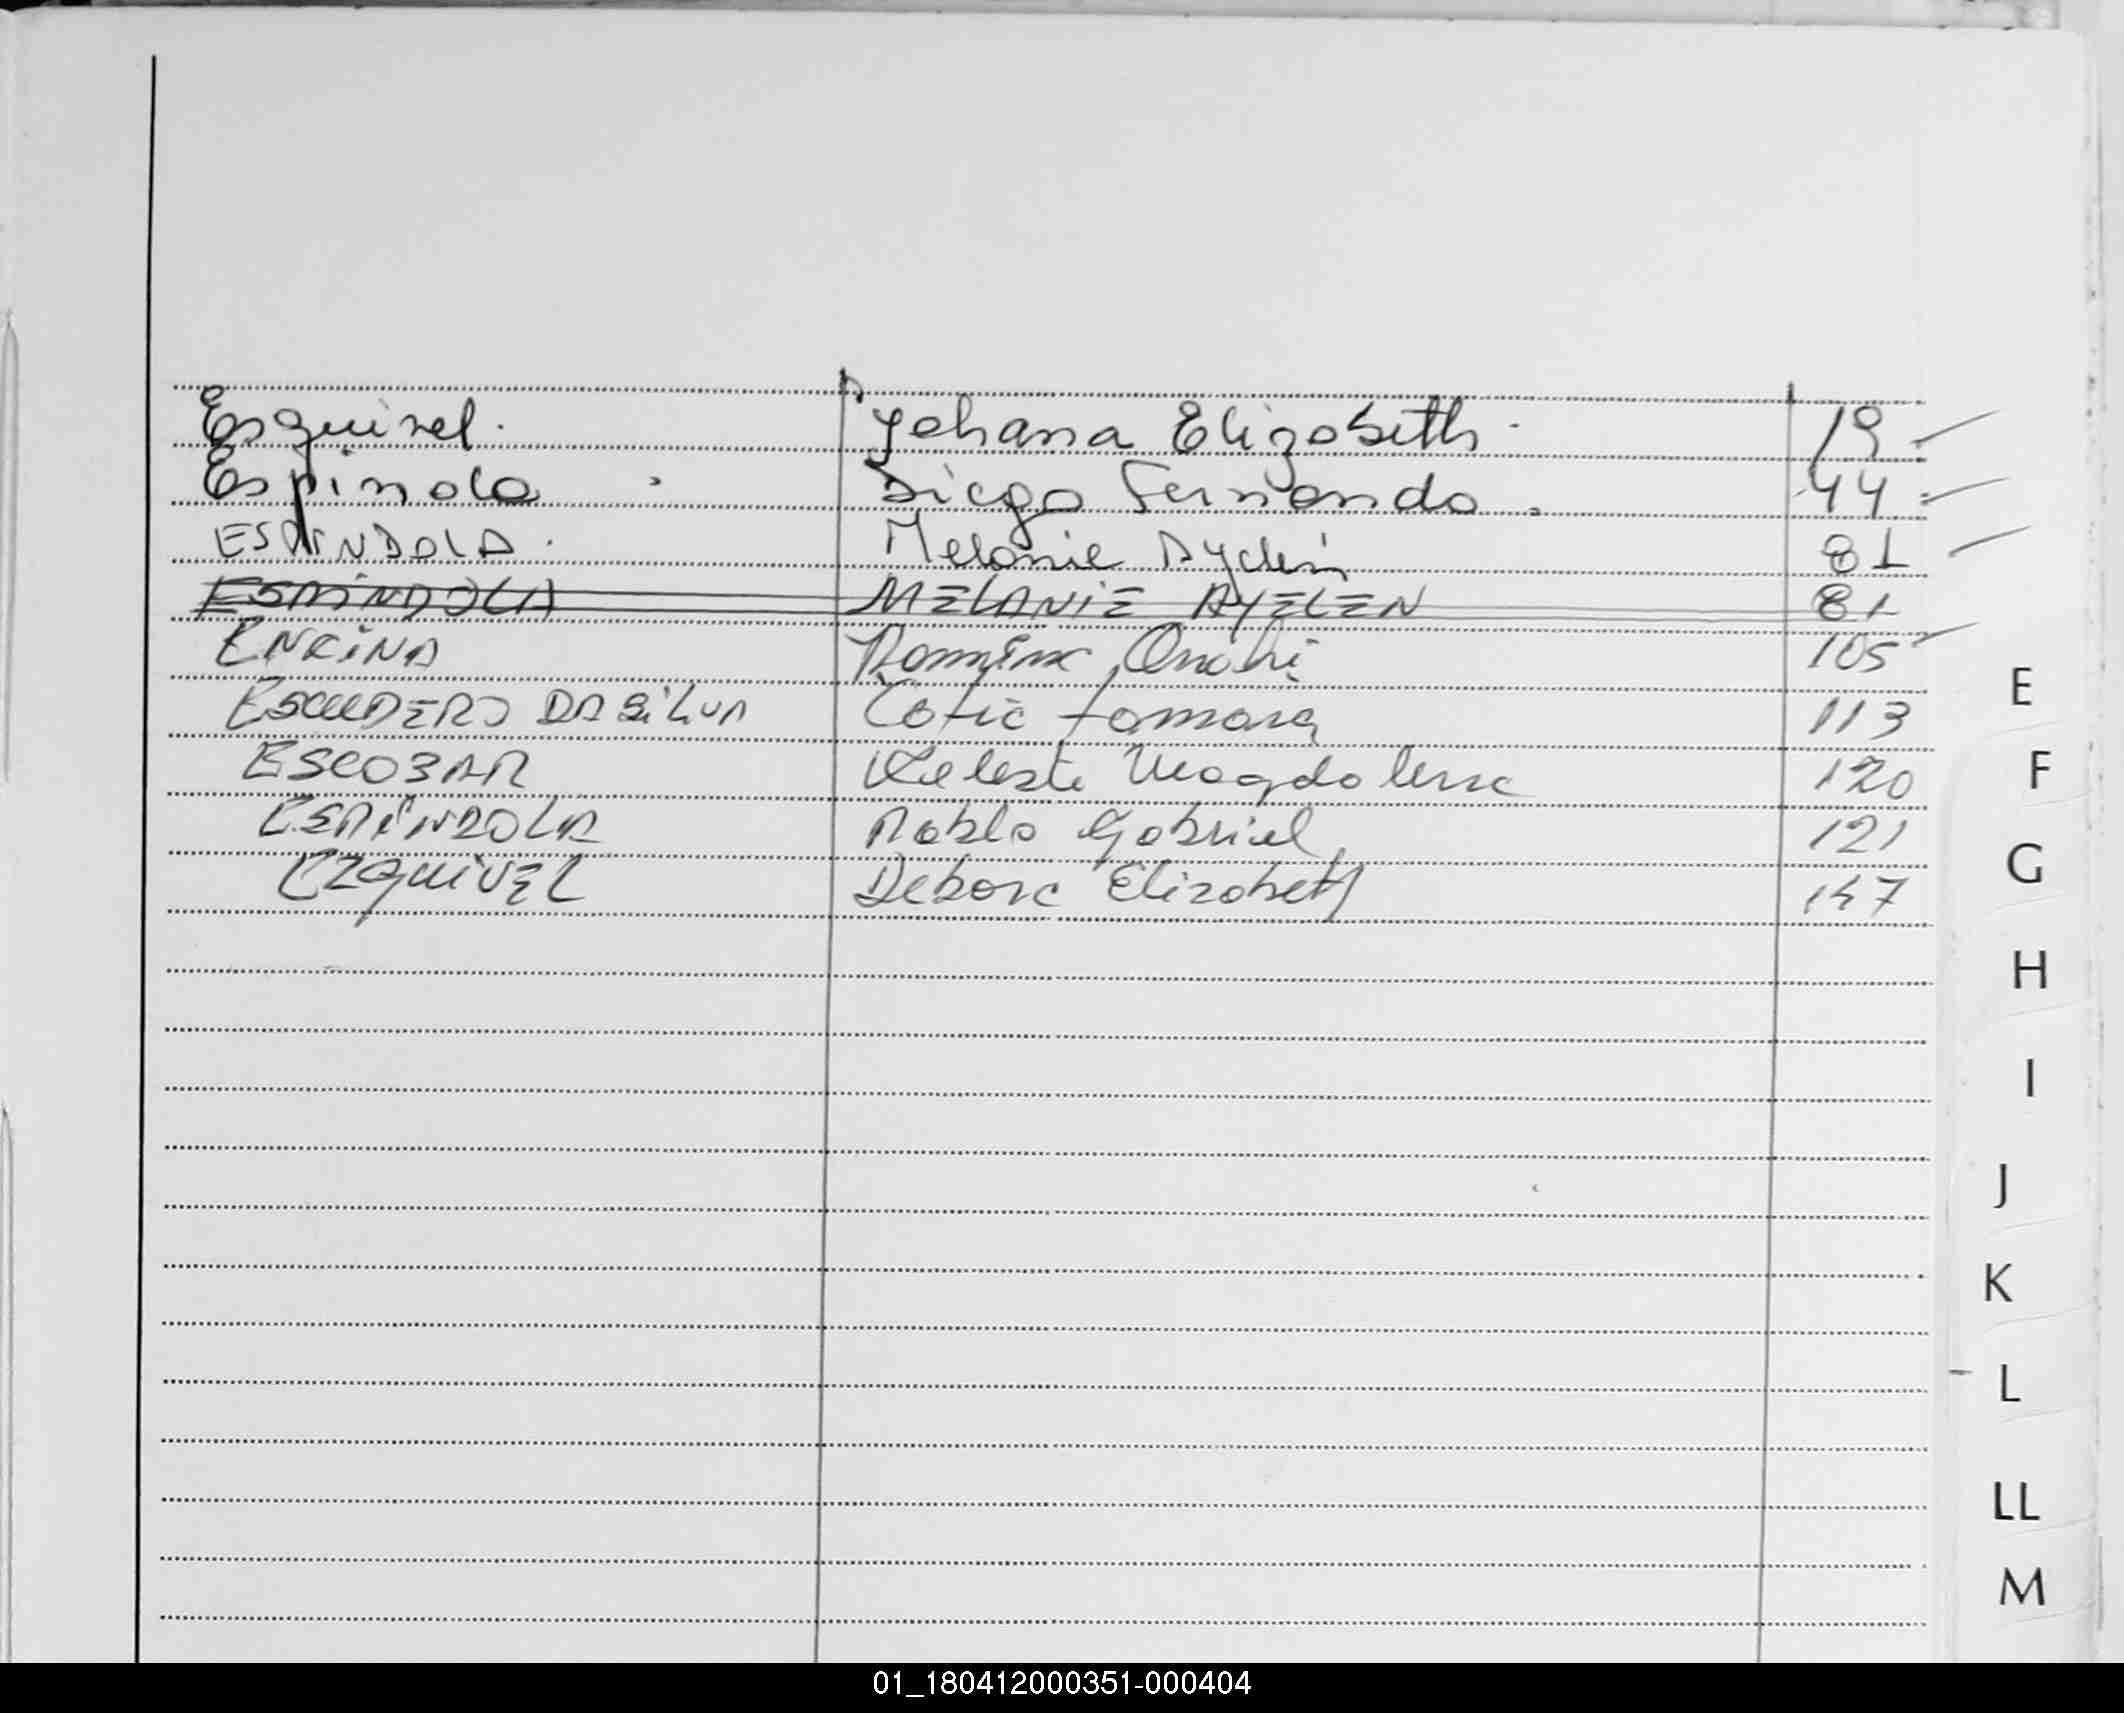 Esquivel. Johana Elizabeth. 19
Espinola Diego Fernando. 44
ESPINDOLA. Melanie Aylén 81
ESPINDOLA MELANIE AYELEN 81
ENCINA Romina Anahi 105
ESCUDERO DA SILVA Catia tamara 113
ESCOBAR Celeste Magdalena 120
ESPINDOLA Pablo Gabriel 121
EZQUIVEL Debora Elizabeth 147
E
F
G
H
I
J
K
L
LL
M
01_180412000351-000404